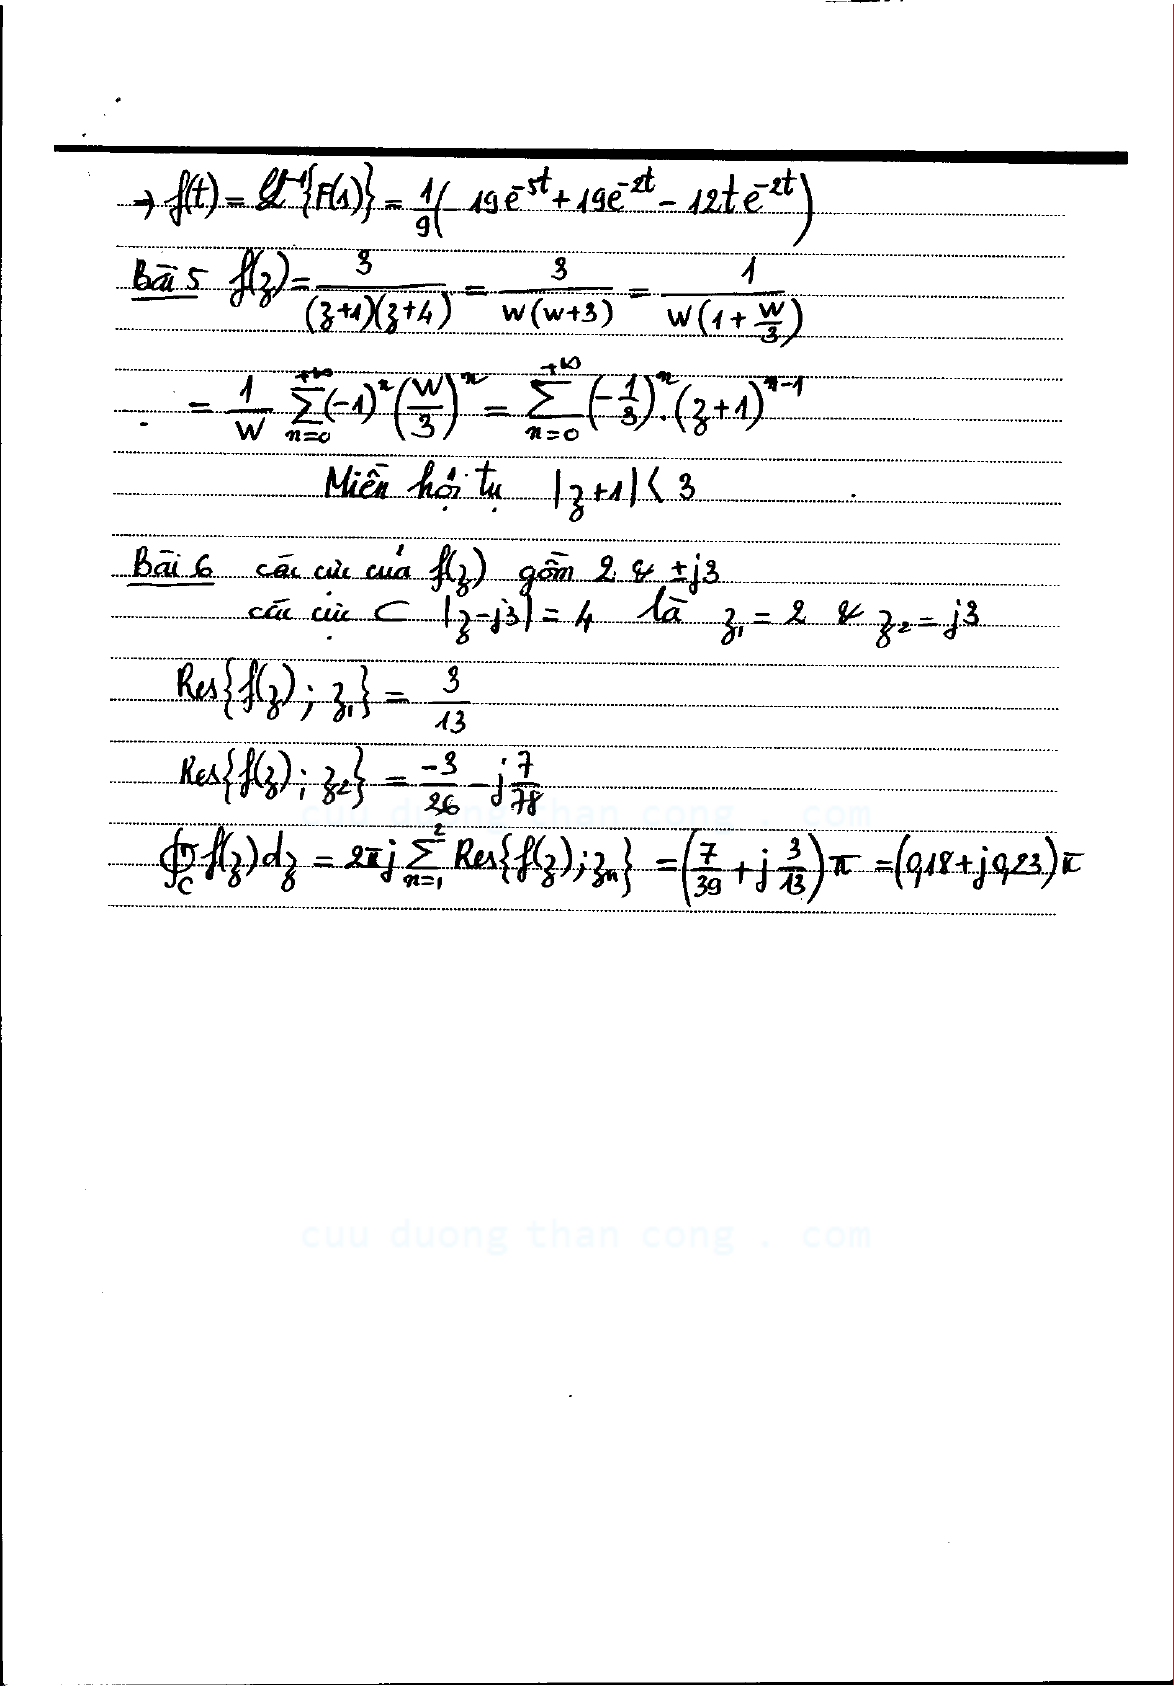 → f(t) = ℒ⁻¹{F(1)} = 1/9 ( 19e^-5t + 19e^-2t - 12te^-2t )
Bài 5 f(z) = 3/((z+1)(z+4)) = 3/(w(w+3)) = 1/(w(1+w/3))
= 1/w ∑_{n=0}^{+∞} (-1)^n (w/3)^n = ∑_{n=0}^{+∞} (-1/3)^n . (z+1)^{n-1}
Miền hội tụ |z+1| < 3
Bài 6 các cực của f(z) gồm 2 & ±j3
các cực ⊂ |z-j3| = 4 là z₁ = 2 & z₂ = j3
Res{f(z); z₁} = 3/13
Res{f(z); z₂} = -3/26 - j 7/78
∮_C f(z)dz = 2πj ∑_{n=1}^{2} Res{f(z); z_n} = (7/39 + j 3/13)π = (0,18 + j0,23)π
cuu duong than cong . com
cuu duong than cong . com